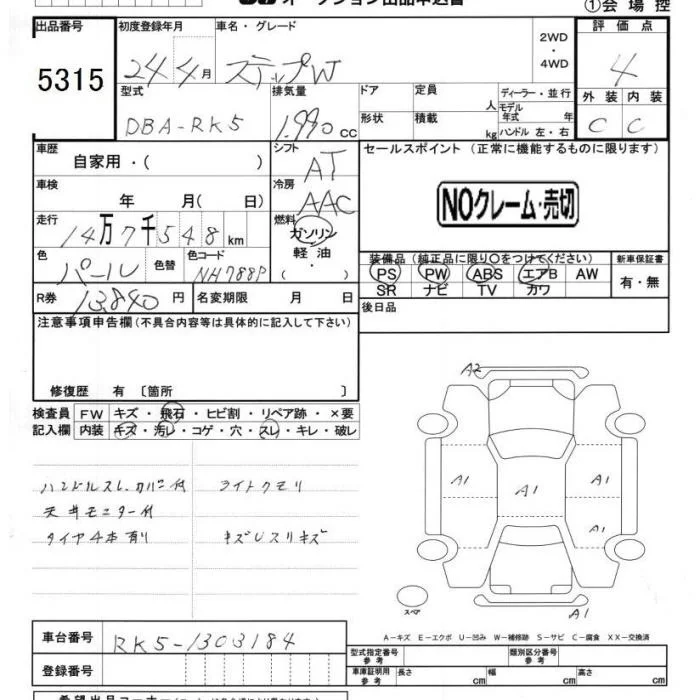 オークション出品申込書
①会場控
出品番号 初度登録年月 車名・グレード 2WD ・ 4WD 評価点
5315 24年4月 ステップW 4
型式 排気量 ドア 定員 人 ディーラー・並行 外装 内装
DBA-RK5 1.990cc 形状 積載 kg モデル年式 年 ハンドル 左・右 C C
車歴 シフト セールスポイント（正常に機能するものに限ります）
自家用・( ) AT
車検 冷房
年 月( 日) AAC NOクレーム・売切
走行 燃料
14万7千548km ガソリン
色 色替 色コード 軽油 装備品（純正品に限り○をつけてください） 新車保証書
パール NH788P ( ・ ) PS PW ABS エアB AW 有・無
SR ナビ TV カワ
R券 13,840円 名変期限 月 日 後日品
注意事項申告欄（不具合内容等は具体的に記入して下さい）
修復歴 有〔箇所 〕
A2
検査員 FW キズ・飛石・ヒビ割・リペア跡・×要
記入欄 内装 キズ・汚レ・コゲ・穴・スレ・キレ・破レ
ハンドルスレ、カバー付 ライトクモリ
A1 A1 A1
天井モニター付
タイヤ4本有り キズUスリキズ A1
スペア A1
A－キズ E－エクボ U－凹み W－補修跡 S－サビ C－腐食 XX－交換済
車台番号 RK5-1303184
型式指定番号 参考 類別区分番号 参考
登録番号 車庫証明用 参考 長さ cm 幅 cm 高さ cm